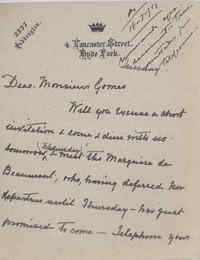 4 Lancaster Street,
Hyde Park.
Tuesday
Dear Monsieur Gomes
Will you excuse a short
invitation & come & dine with us
tomorrow, (Wednesday)
to meet the Marquise de
Beaumont, who, having deferred her
departure until Thursday – has just
promised to come – Telephone your